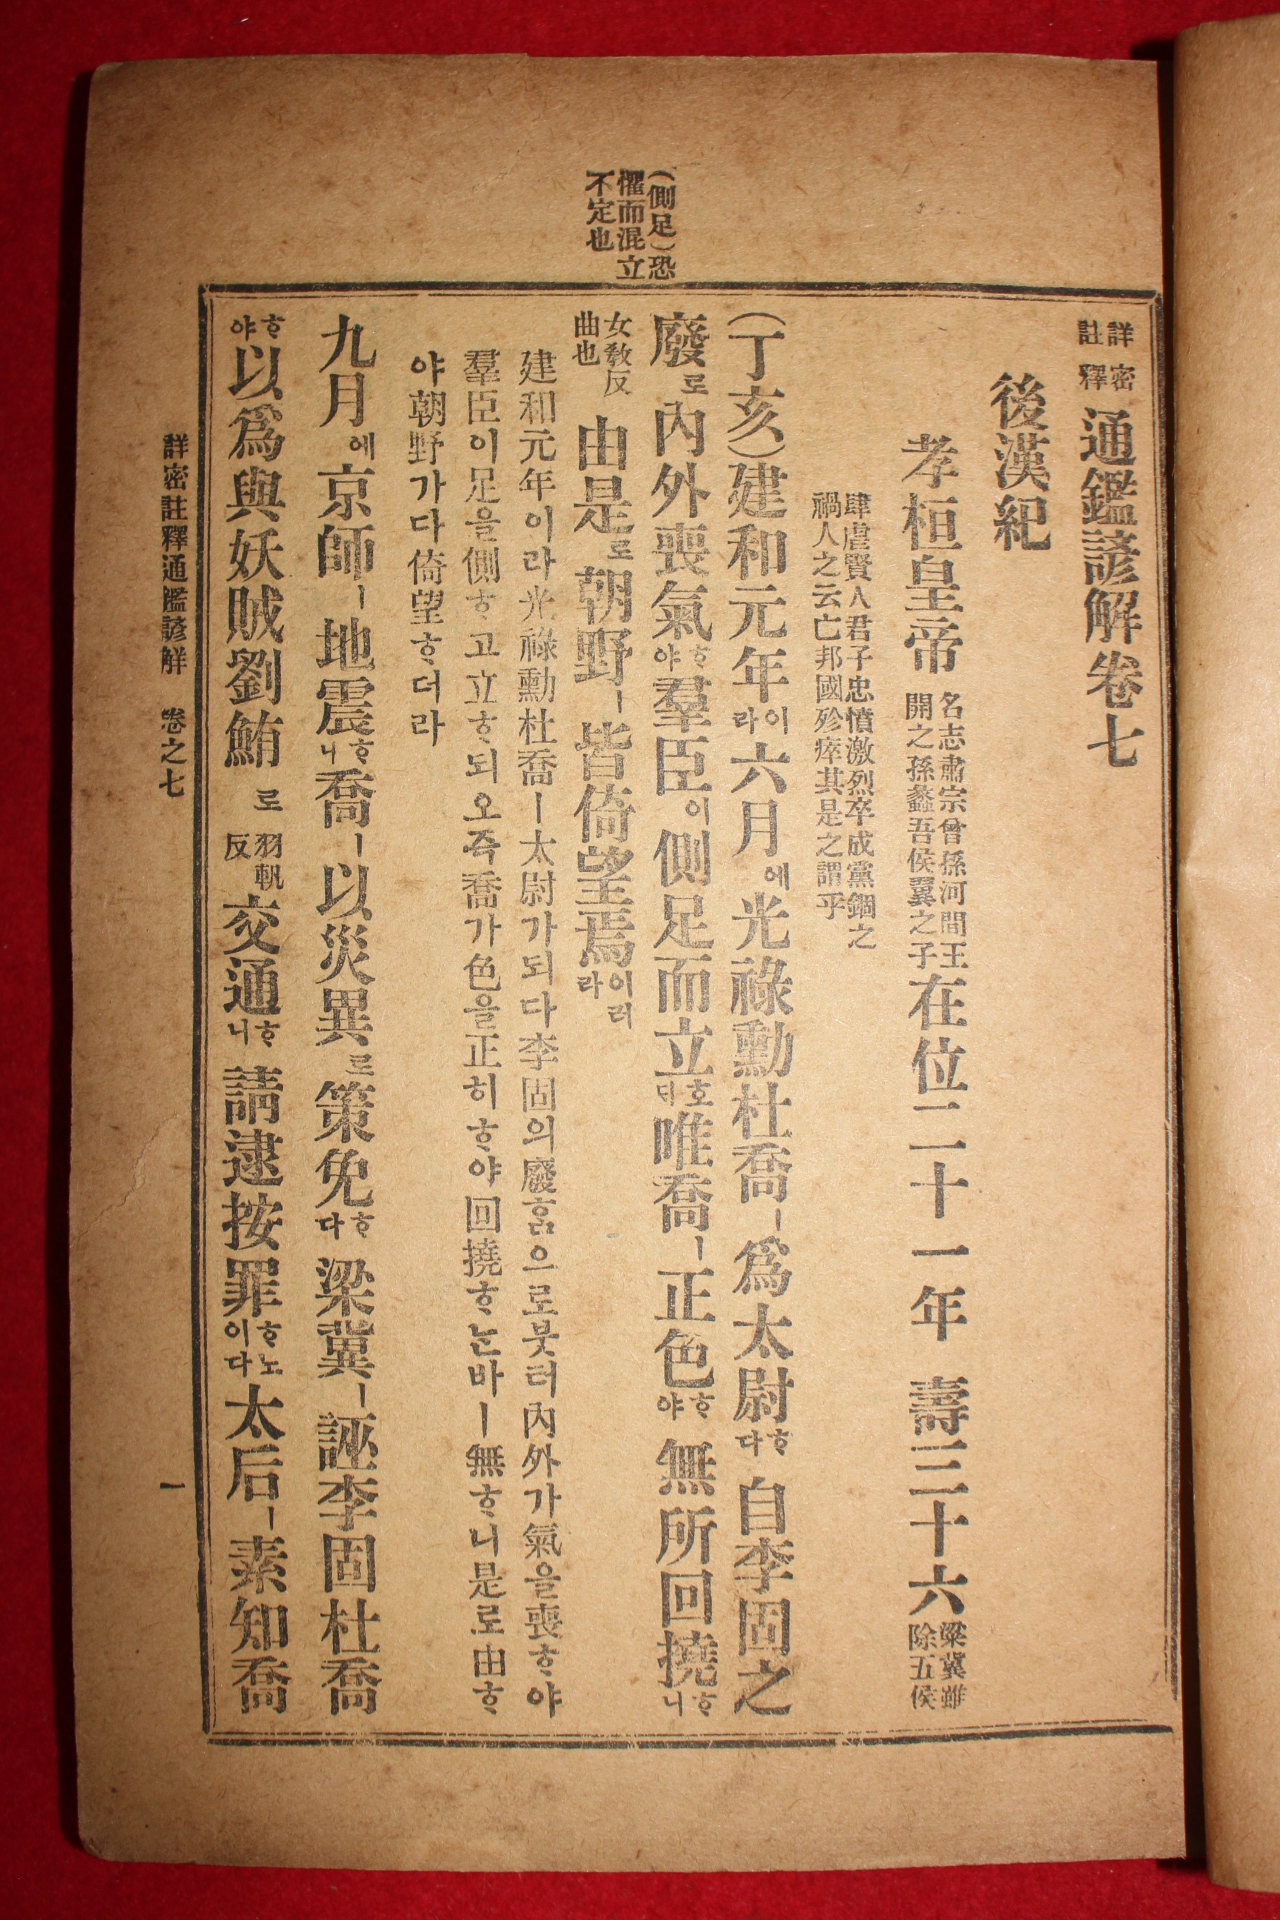 詳密註釋通鑑諺解卷七
後漢紀
孝桓皇帝 名志肅宗曾孫河間王開之孫蠡吾侯翼之子 在位二十一年 壽三十六 梁冀雖除五侯
肆虐賢人君子忠憤激烈卒成黨錮之禍人之云亡邦國殄瘁其是之謂乎
(丁亥)建和元年이라六月에光祿勳杜喬ㅣ爲太尉ᄒᆞ다自李固之
廢로內外喪氣ᄒᆞ야羣臣이側足而立호ᄃᆡ唯喬ㅣ正色ᄒᆞ야無所回撓ᄒᆞ니
女敎反曲也 由是로朝野ㅣ皆倚望焉이러라
建和元年이라光祿勳杜喬ㅣ太尉가되다李固의廢홈으로붓터內外가氣을喪ᄒᆞ야
羣臣이足을側ᄒᆞ고立ᄒᆞ되오즉喬가色을正히ᄒᆞ야回撓ᄒᆞ는바ㅣ無ᄒᆞ니是로由ᄒᆞ
야朝野가다倚望ᄒᆞ더라
九月에京師ㅣ地震ᄒᆞ니喬ㅣ以災異로策免ᄒᆞ다梁冀ㅣ誣李固杜喬
ᄒᆞ야以爲與妖賊劉鮪로 羽軌反 交通ᄒᆞ니請逮按罪ᄒᆞ노이다太后ㅣ素知喬
(側足)恐
懼而混立
不定也
詳密註釋通鑑諺解 卷之七 一